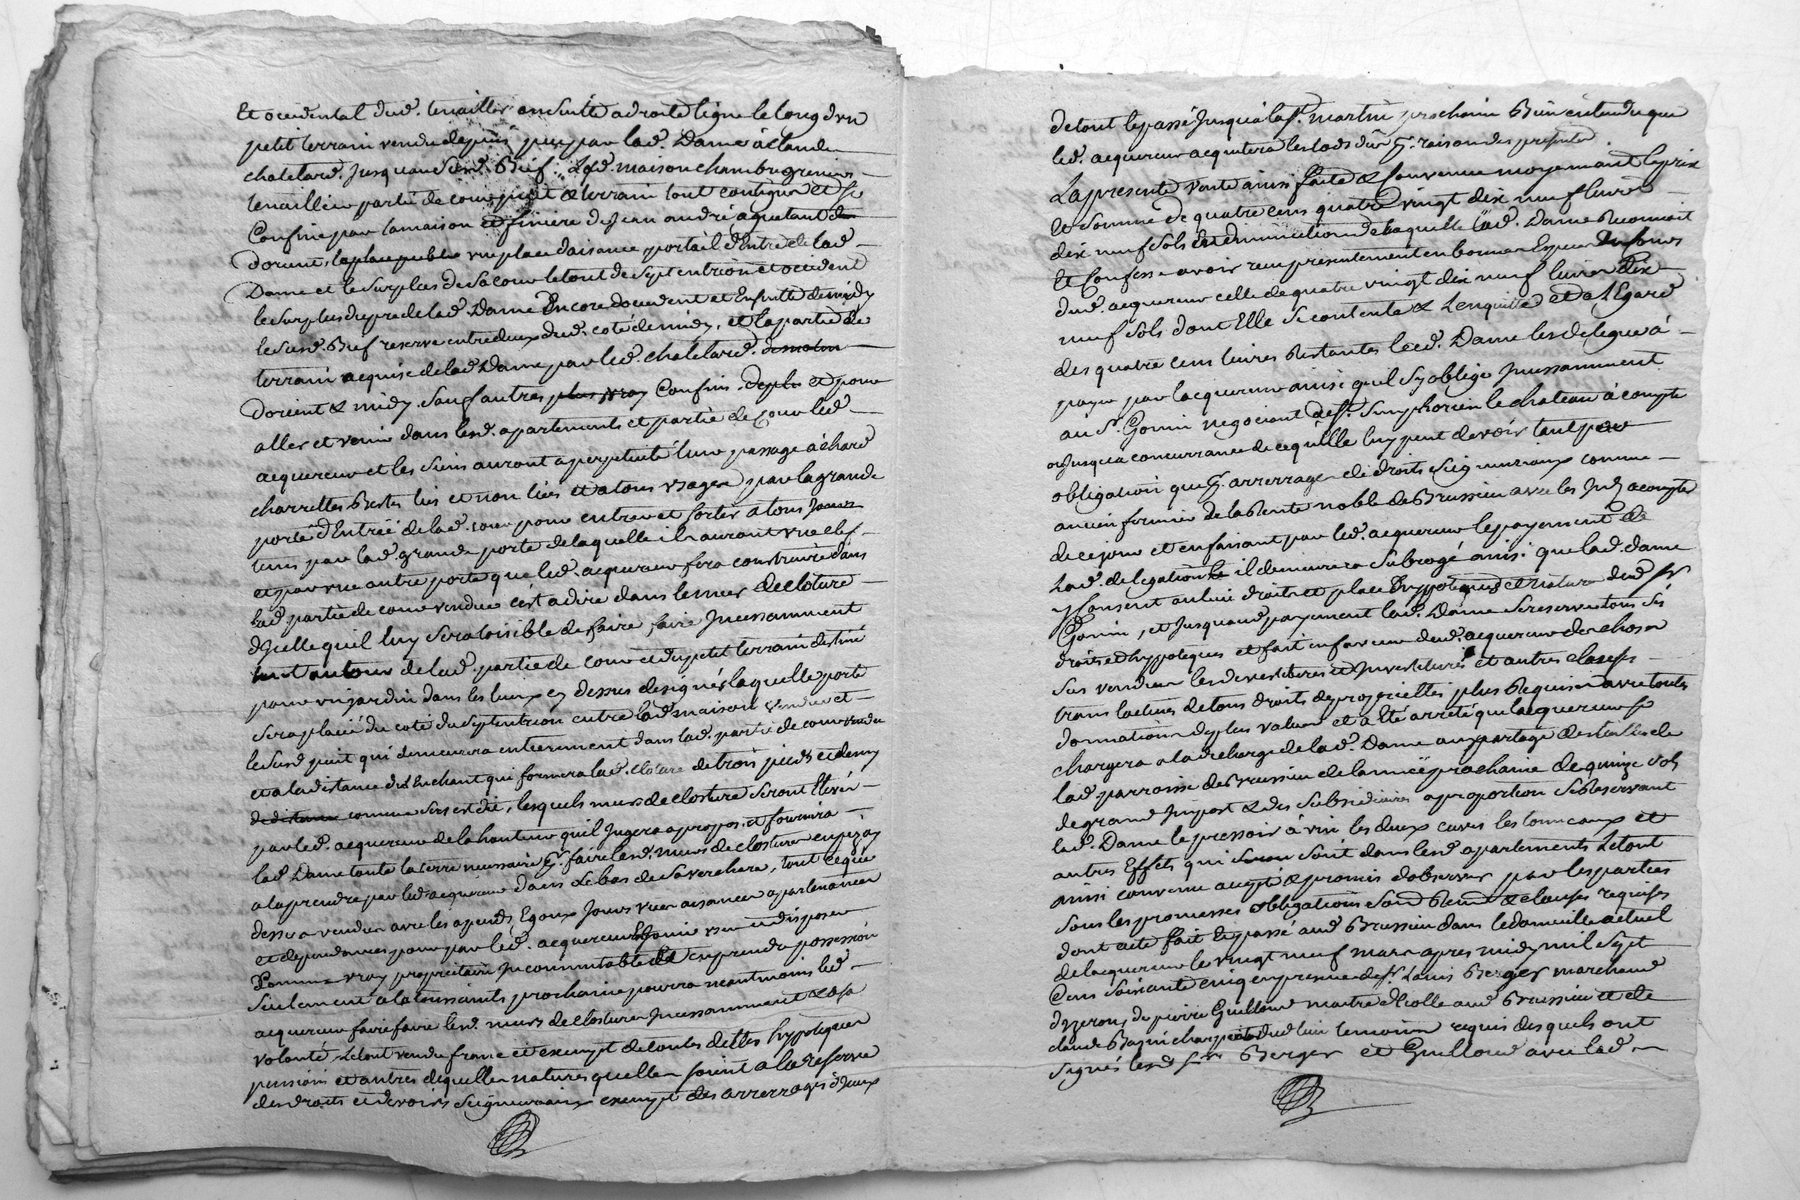 Et occidental dud. tenaillier ensuitte a droite ligne le long d'un
petit terrain vendu depuis peu par lad. Dame à Claude
chatelard. jusqu'aud. Bief. Lad. maison chambre greniers
tenaillier partie de cour puit & terrain tout contigus et se
Confine par la maison et finiere de Jean andré aguetant de
dorient, la place publique place daisance portail d'Entrée de lad
Dame et le surplus de sa cour le tout de septentrion et occident
le surplus du pre de lad. Dame Encore doccident et Ensuitte de midy
le susd. Bief reserve entre deux dud. coté de midy, et la partie de
terrain acquise de lad Dame par led. chatelard.
dorient & midy. sauf autres Confins et pour
aller et venir dans lesd. apartements et partie de cour led
acquereur et les siens auront a perpetuité leur passage à chard
charrettes Bestes liés et non liés et a tous usages par la grande
porte d'Entrée de lad. cour pour entrer et sortir a tous Jours
tems par lad. grande porte de laquelle ils auront une clef
et par une autre porte que led. acquereur fera construire dans
lad. partie de cour vendue c'est a dire dans le mur de cloture
d'Icelle quil luy sera loisible de faire faire Incessamment
tout autour de lad. partie de cour et du petit terrain destiné
pour un jardin dans les lieux cy dessus designés laquelle porte
sera placée du coté du septentrion entre lad maison vendue et
le susd puit qui demeurera entierement dans lad. partie de cour vendue
et a la distance du couchant qui formera lad. cloture de trois pieds et demy
de distance comme sus est dit, lesquels murs de closture seront Elevés
par led. acquereur de la hauteur quil Jugera apropos, et fournira
lad Dame toute la terre necessaire pr. faire lesd. murs de closture en pizay
a la prendre par led acquereur dans Le bas de sa verchere, tout ce que
dessus vendu avec les apends, Egoux Jours vues aisances apartenances
et dependances pour par led. acquereur Jouir user en disposer
Comme vray proprietaire Incommutable et En prendre possession
seulement a la toussaints prochaine pourra neantmoins led
acquereur faire faire lesd. murs de closture Incessamment & a sa
volonté, Letout vendu franc et exempt de toutes dettes hypoteques
pensions et autres dequelles natures quelles soient a la reserve
des droits et devoirs seigneuriaux exempt des arrerrages d'Iceux
de tout le passé Jusqu'a la St. martin prochain Bien entendu que
led. acquereur acquitera les lods dûs pr. raison des presentes
La presente vente ainsi faite & convenue moyennant le prix
et somme de quatre cens quatre vingt dix neuf livres
dix neuf sols En diminution de laquelle lad. Dame Reconnoit
et Confesse avoir reçu presentement en bonnes Especes
dud. acquereur celle de quatre vingt dix neuf livres dix
neuf sols dont Elle se contente & Len quitte et a l'Egard
des quatre cens livres Restantes lad. Dame les delegue à
payer par lacquereur ainsi quil sy oblige Incessamment
au Sr. Gonin negociant de St. Simphorien le chateau à compte
ou Jusqua concurrance de cequ'elle luy peut devoir tant par
obligation que pr. arrerrages de droits seigneuriaux comme
ancien fermier de la Rente noble de Brussieu avec les Int. a compter
de ce jour et en faisant par led. acquereur le payement de
Lad. delegation il demeurera subrogé ainsi que lad. dame
y Consent au lieu droit et place hyppoteques et nature dud Sr
Gonin, et Jusqu'aud. payement lad. Dame se reserve tous ses
droits et hyppoteques et fait en faveur dud. acquereur des choses
sus vendues les devestitures et Investitures et autres clauses
translatives de tous droits de proprietés plus Requises avec toutes
donnations de plus value et a Eté arreté que lacquereur se
chargera a la decharge de lad. Dame aux partage des tailles de
lad. parroisse de Brussieu de lannée prochaine de quinze sols
de grand Impost & des subsidiaires a proportion se Reservant
lad. Dame le pressoir à vin les deux cuves les tonneaux et
autres Effets qui sont dans lesd apartements Letout
ainsi convenu accepté & promis dobserver par les parties
sous les promesses obligations Soud Renond & clauses requises
dont acte fait Et passé aud Brussieu dans le domicille actuel
de lacquereur le vingt neuf mars apres midy mil sept
Cens soixante cinq en presence de Sr. Louis Berger marchand
d'yzeron, de pierre Guilloud maitre d'Ecolle aud Brussieu et de
claude Bagni charpentier dud lieu temoins requis desquels ont
signés lesd Srs Berger et Guilloud avec lad.